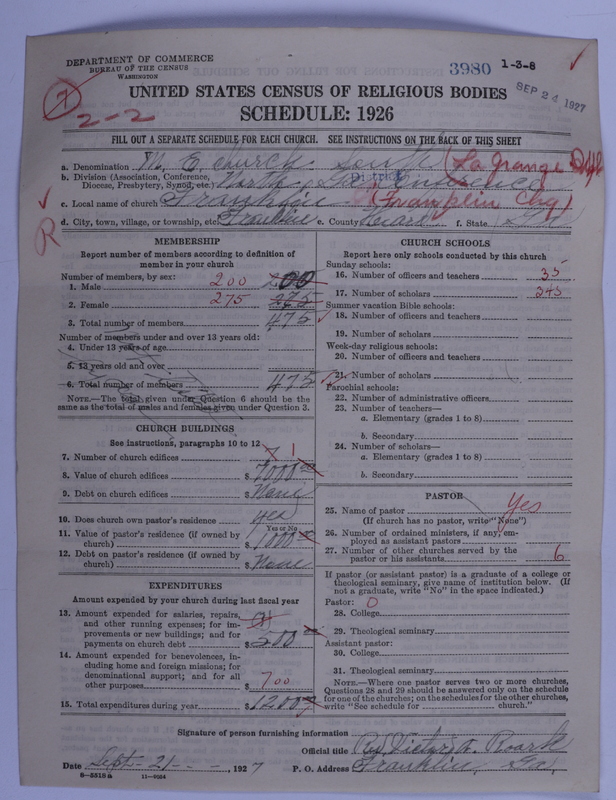 DEPARTMENT OF COMMERCE
BUREAU OF THE CENSUS
WASHINGTON
3980 1-3-8
SEP 24 1927
7
2-2
UNITED STATES CENSUS OF RELIGIOUS BODIES
SCHEDULE: 1926
FILL OUT A SEPARATE SCHEDULE FOR EACH CHURCH. SEE INSTRUCTIONS ON THE BACK OF THIS SHEET
a. Denomination M. E. Church. South (La Grange
b. Division (Association, Conference, Diocese, Presbytery, Synod, etc.) North District
c. Local name of church Franklin (Franklin Chg)
R
d. City, town, village, or township, etc. Franklin e. County Heard f. State Ga
MEMBERSHIP
Report number of members according to definition of member in your church
Number of members, by sex:
1. Male 200 200
2. Female 275 275
3. Total number of members 475
Number of members under and over 13 years old:
4. Under 13 years of age
5. 13 years old and over
6. Total number of members 475
NOTE.—The total given under Question 6 should be the same as the total of males and females given under Question 3.
CHURCH BUILDINGS
See instructions, paragraphs 10 to 12
7. Number of church edifices 1
8. Value of church edifices $ 7000 00
9. Debt on church edifices $ None
10. Does church own pastor's residence yes
Yes or No
11. Value of pastor's residence (if owned by church) $ 1000 00
12. Debt on pastor's residence (if owned by church) $ None
EXPENDITURES
Amount expended by your church during last fiscal year
13. Amount expended for salaries, repairs, and other running expenses; for improvements or new buildings; and for payments on church debt $ 500
14. Amount expended for benevolences, including home and foreign missions; for denominational support; and for all other purposes $ 700
15. Total expenditures during year $ 1200
CHURCH SCHOOLS
Report here only schools conducted by this church
Sunday schools:
16. Number of officers and teachers 35
17. Number of scholars 345
Summer vacation Bible schools:
18. Number of officers and teachers
19. Number of scholars
Week-day religious schools:
20. Number of officers and teachers
21. Number of scholars
Parochial schools:
22. Number of administrative officers
23. Number of teachers—
a. Elementary (grades 1 to 8)
b. Secondary
24. Number of scholars—
a. Elementary (grades 1 to 8)
b. Secondary
PASTOR
25. Name of pastor Yes
(If church has no pastor, write "None")
26. Number of ordained ministers, if any, employed as assistant pastors
27. Number of other churches served by the pastor or his assistants 6
If pastor (or assistant pastor) is a graduate of a college or theological seminary, give name of institution below. (If not a graduate, write "No" in the space indicated.)
Pastor: 0
28. College
29. Theological seminary
Assistant pastor:
30. College
31. Theological seminary
NOTE.—Where one pastor serves two or more churches, Questions 28 and 29 should be answered only on the schedule for one of the churches; on the schedules for the other churches, write "See schedule for ______ church."
Signature of person furnishing information
Official title Victor A. Roark
Date Sept-21-, 1927 P. O. Address Franklin, Ga.
8-5518 a 11-9504